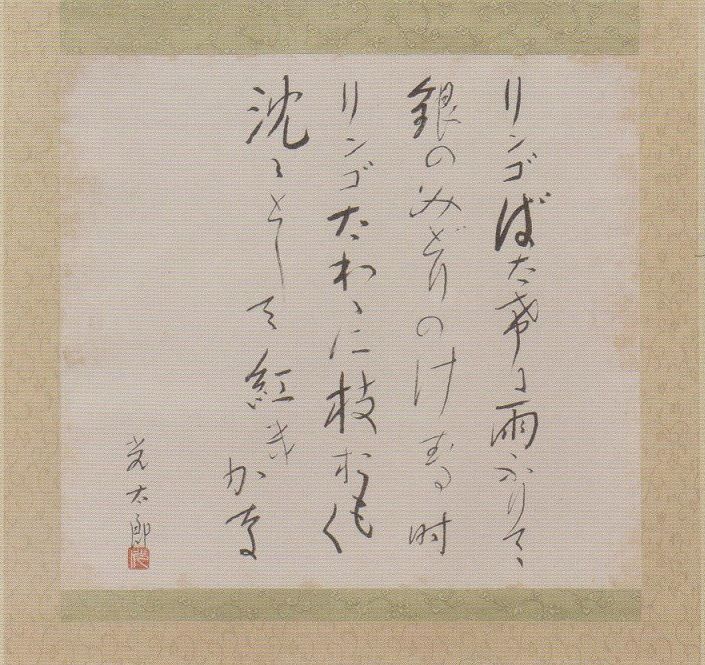 リンゴばたけに雨ふりて、
銀のみどりのけむる時
リンゴたわゝに枝おもく
沈々として紅き
かな
光太郎